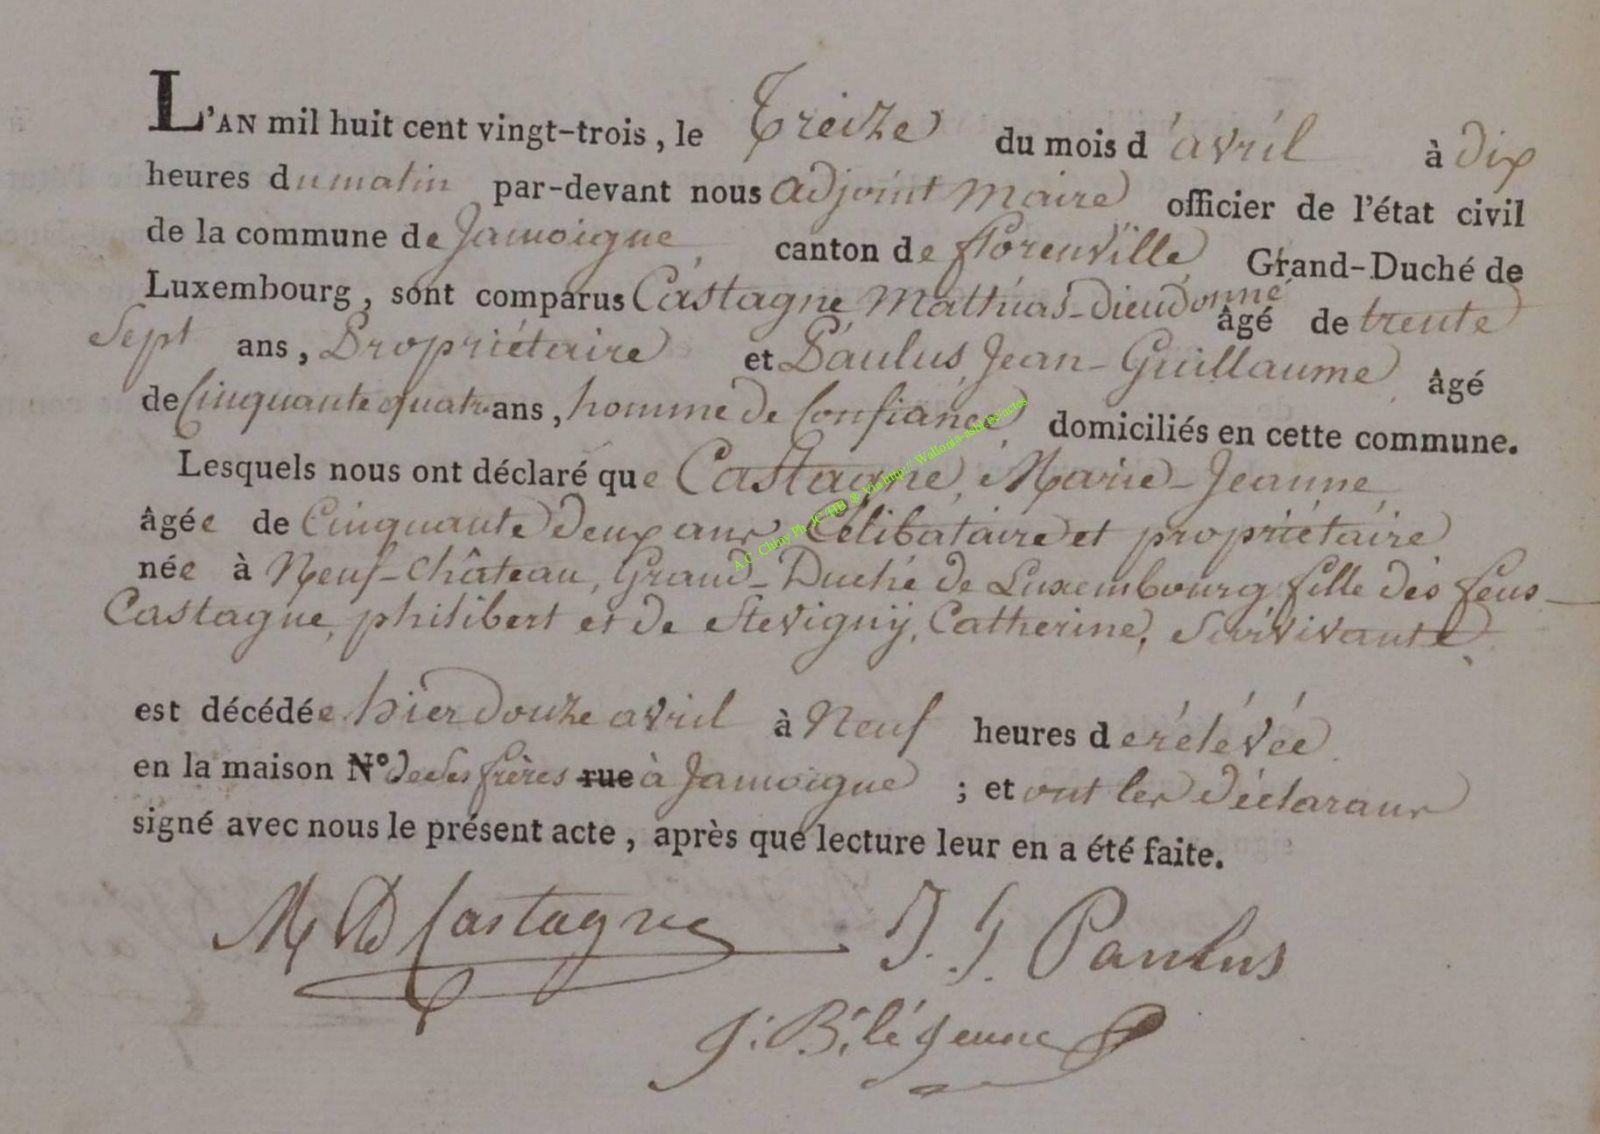 L'AN mil huit cent vingt-trois, le Treize du mois d'avril à dix
heures du matin par-devant nous adjoint Maire officier de l'état civil
de la commune de Jamoigne, canton de florenville, Grand-Duché de
Luxembourg, sont comparus Castagne Mathias-Dieudonné âgé de trente
Sept ans, Propriétaire et Paulus, Jean-Guillaume, âgé
de Cinquante quatre ans, homme de Confiance, domiciliés en cette commune.
Lesquels nous ont déclaré que Castagne, Marie-Jeanne,
âgée de Cinquante deux ans, Célibataire et propriétaire
née à Neuf-Château, Grand-Duché de Luxembourg fille des feus
Castagne, philibert et de Stevigny, Catherine, Survivante,
est décédée hier douze avril à Neuf heures de rélévée
en la maison N° de ses frères rue à Jamoigne ; et ont les déclarans
signé avec nous le présent acte, après que lecture leur en a été faite.
M D Castagne J. G. Paulus
J: B. le jeune
A.C. Chiny Ph. JC. Via http:// Wallonia-asbl.be/actes